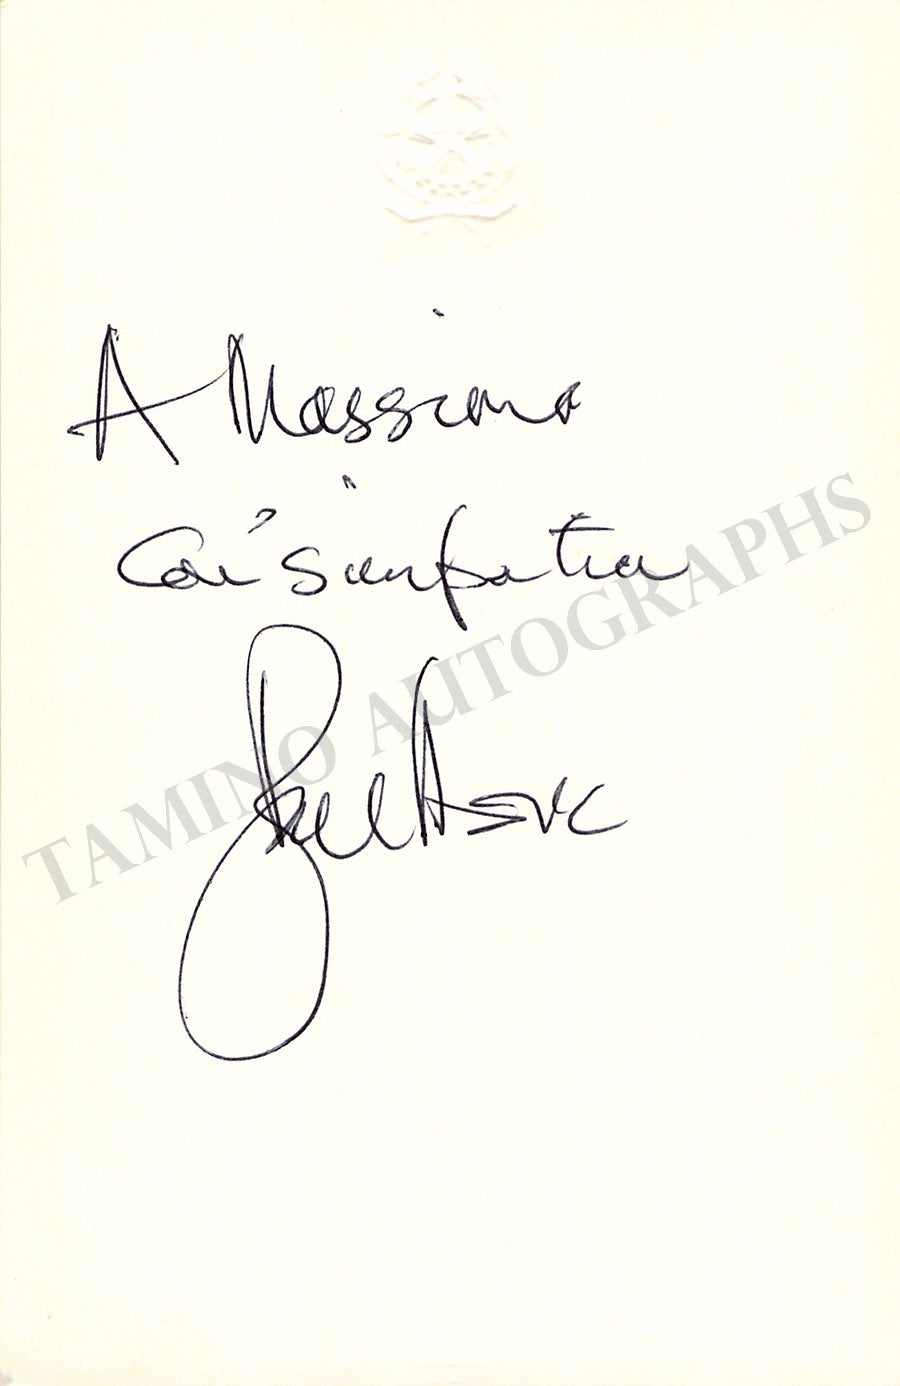 A Massimo
Con simpatia
TAMINO AUTOGRAPHS